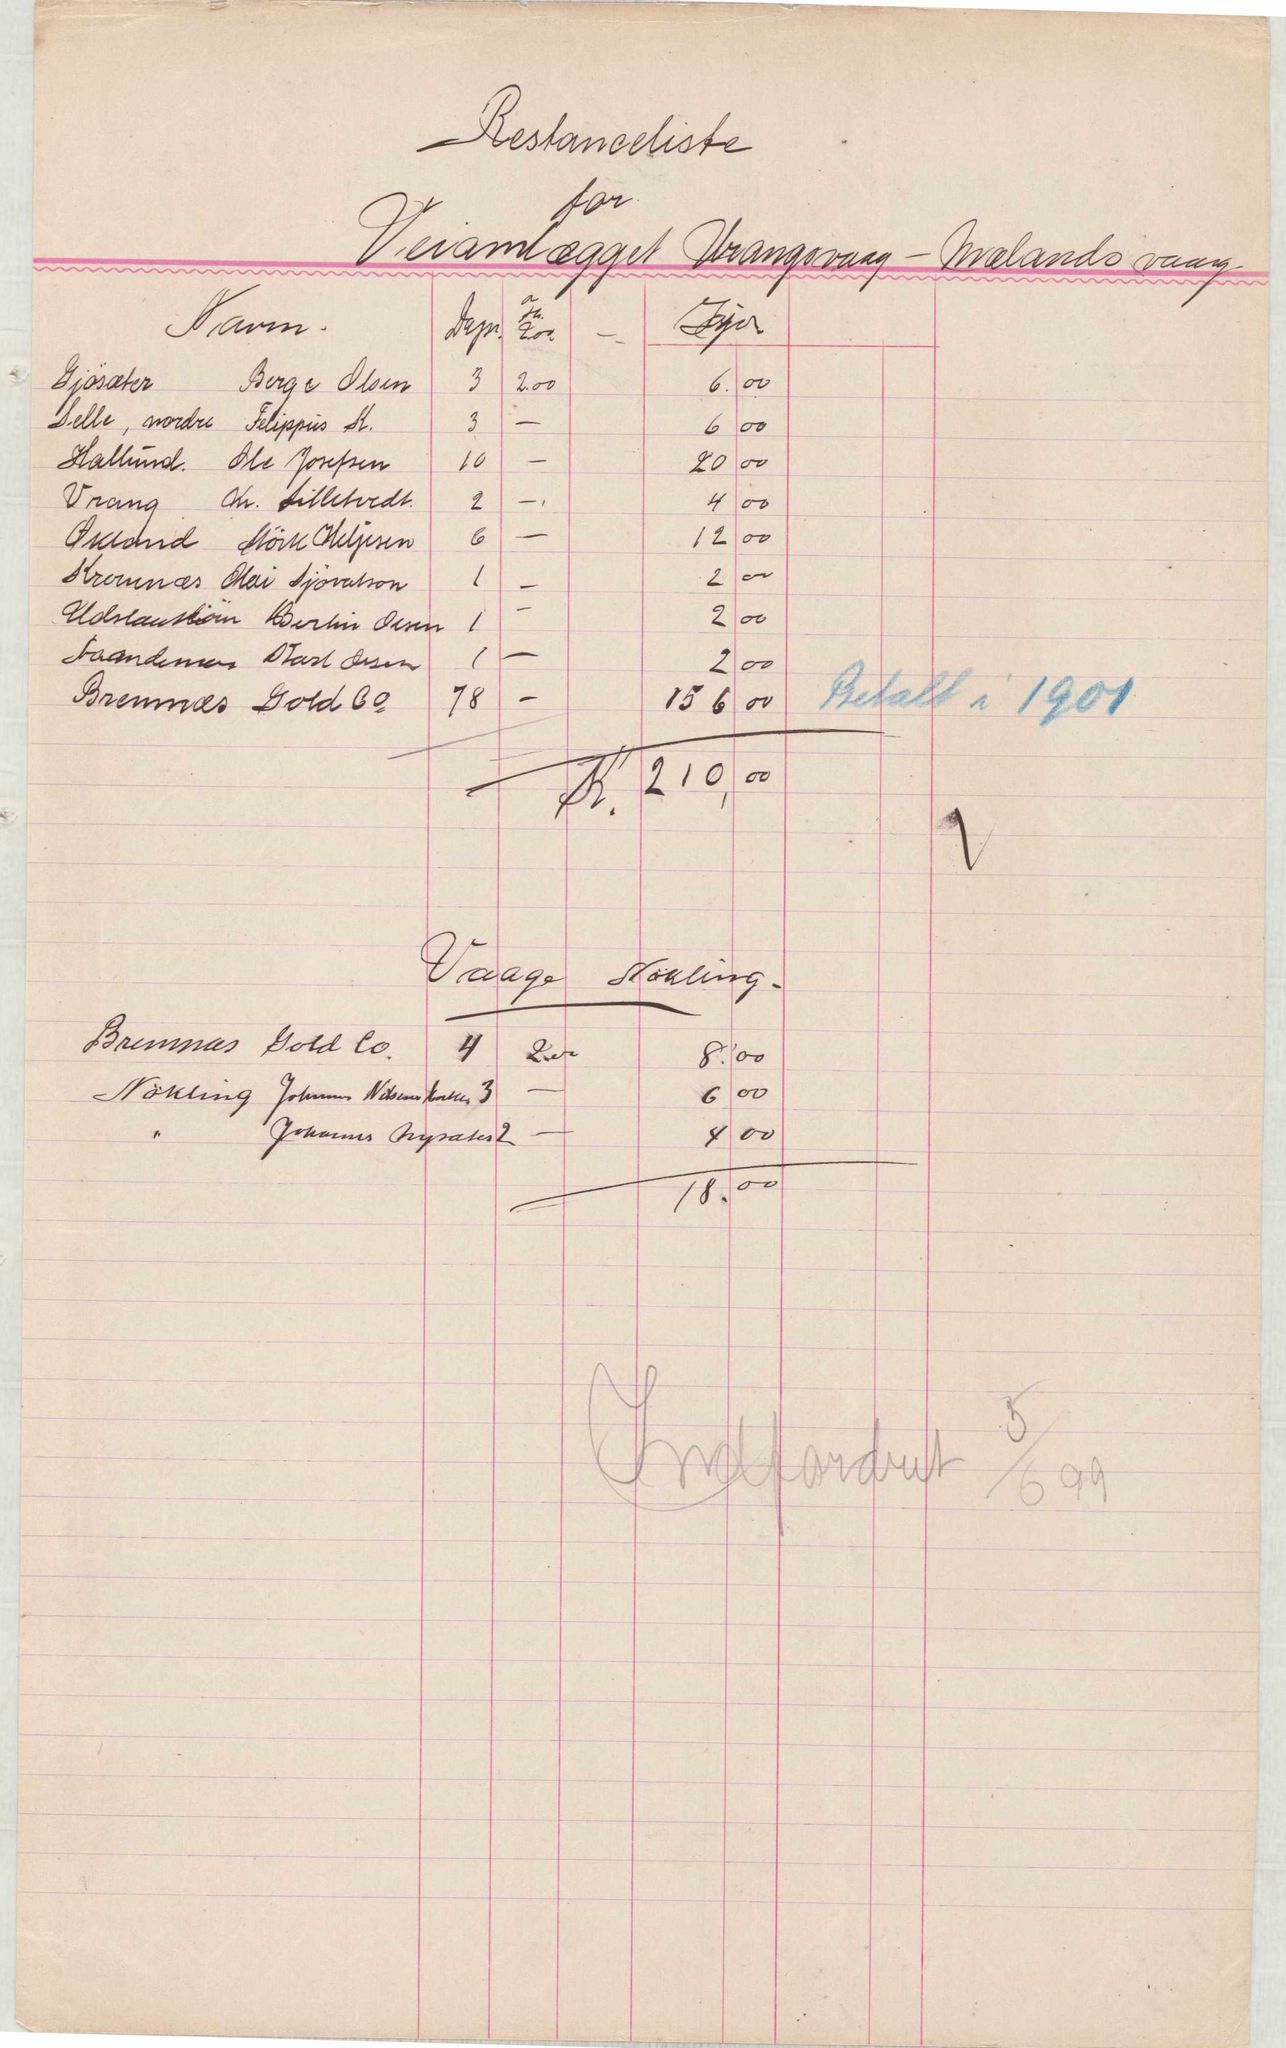 Restanceliste
for
Veianlægget Vrangsvaag - Mælandsvaag
Navn. Dagv. a Kr. 2.00 - Igjen
Gjøsæter Berge Olsen 3 2.00 6.00
Selle, nordre Felippus K. 3 — 6 00
Hallund. Ole Josefsen 10 — 20 00
Vrang Kr. Lilletvedt. 2 — 4 00
Økland Störk Heljesen 6 — 12 00
Kræmnæs Olai Sjövatson 1 — 2 00
Bertin Olsen 1 — 2 00
Olsen 1 — 2 00
Bremnæs Gold Co. 78 — 156 00 Betalt i 1901
Kr. 210,00
Vaage Nökling.
Bremnæs Gold Co. 4 2.00 8.00
Nökling Johannes Nilsens 3 — 6 00
" Johannes 2 — 4 00
18.00
Indfordret 5/6 99